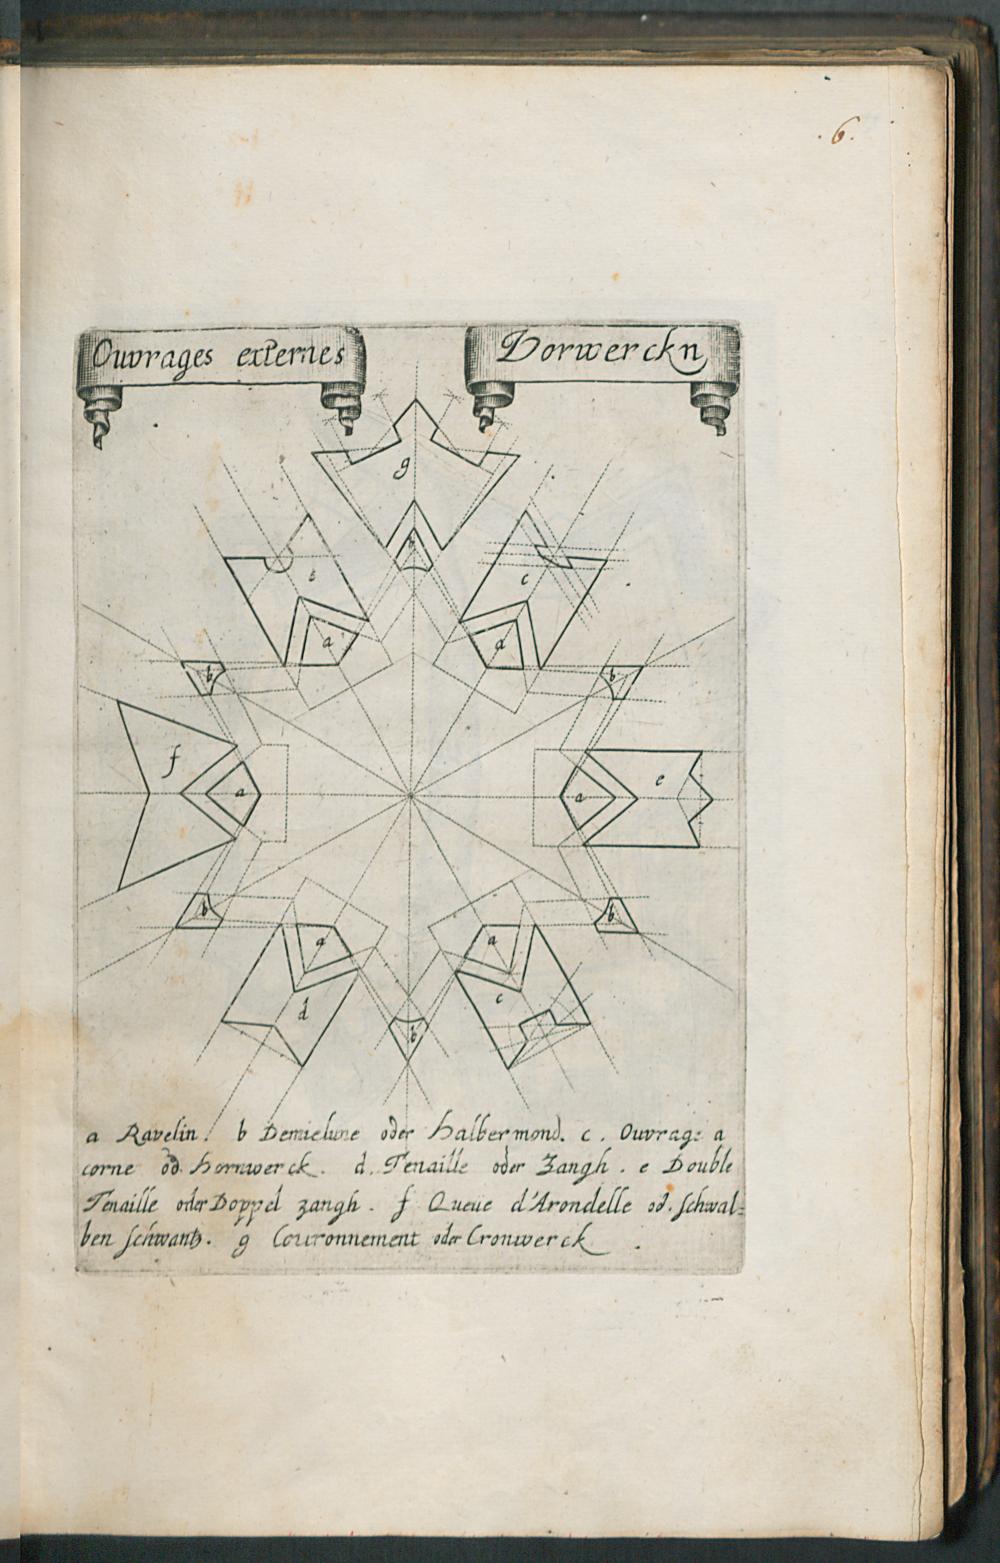 .6.
Ouvrages externes
Vorwerckn
g
b
c
c
a
a
b
b
f
a
a
e
b
b
a
a
d
c
b
a Ravelin. b Demielune oder Halbermond. c. Ouvrage a
corne od. Hornwerck. d. Tenaille oder Zangh. e Double
Tenaille oder Doppel zangh. f Queue d'Arondelle od. schwal=
ben schwantz. g Couronnement oder Cronwerck.